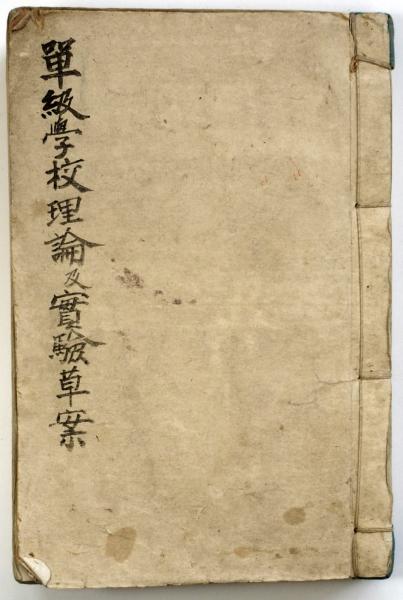 單級學校理論及實驗草案